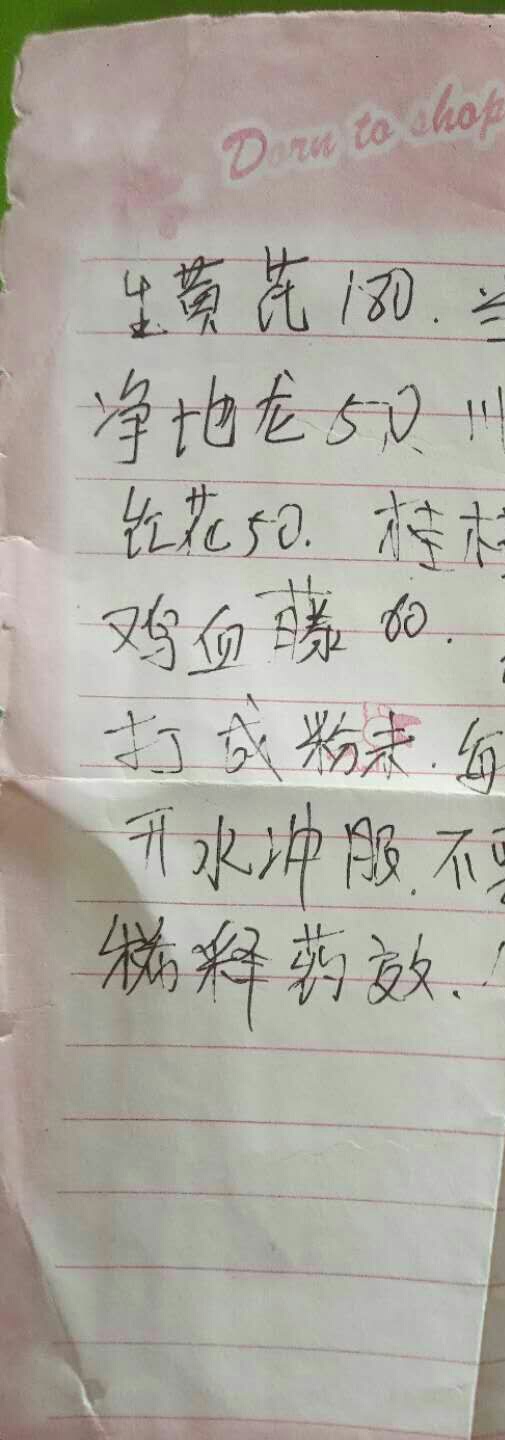 Born to shop
生黄芪180.
净地龙50 川
红花50. 桂枝
鸡血藤60.
打成粉末.每
开水冲服.不要
稀释药效.